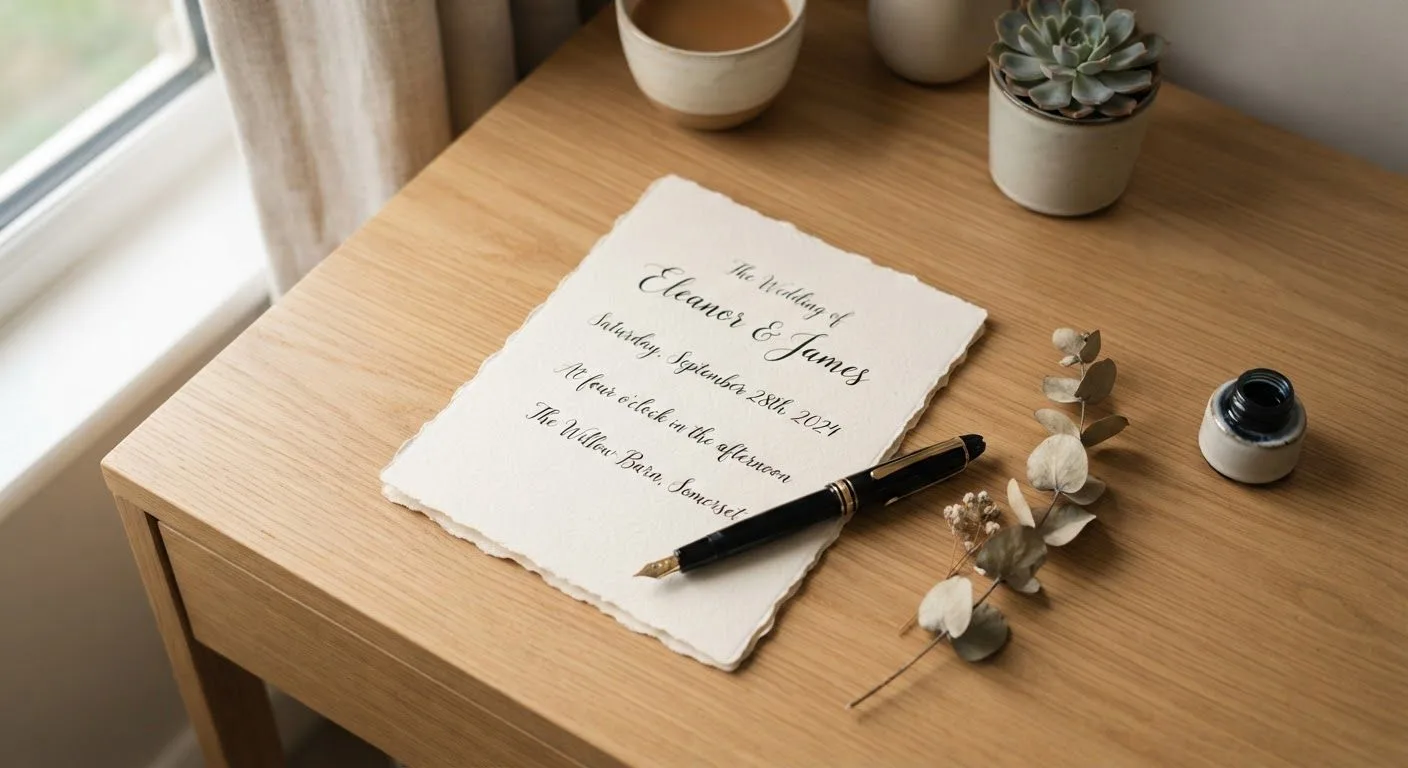 The Wedding of
Eleanor & James
Saturday, September 28th, 2024
At four o'clock in the afternoon
The Willow Barn, Somerset